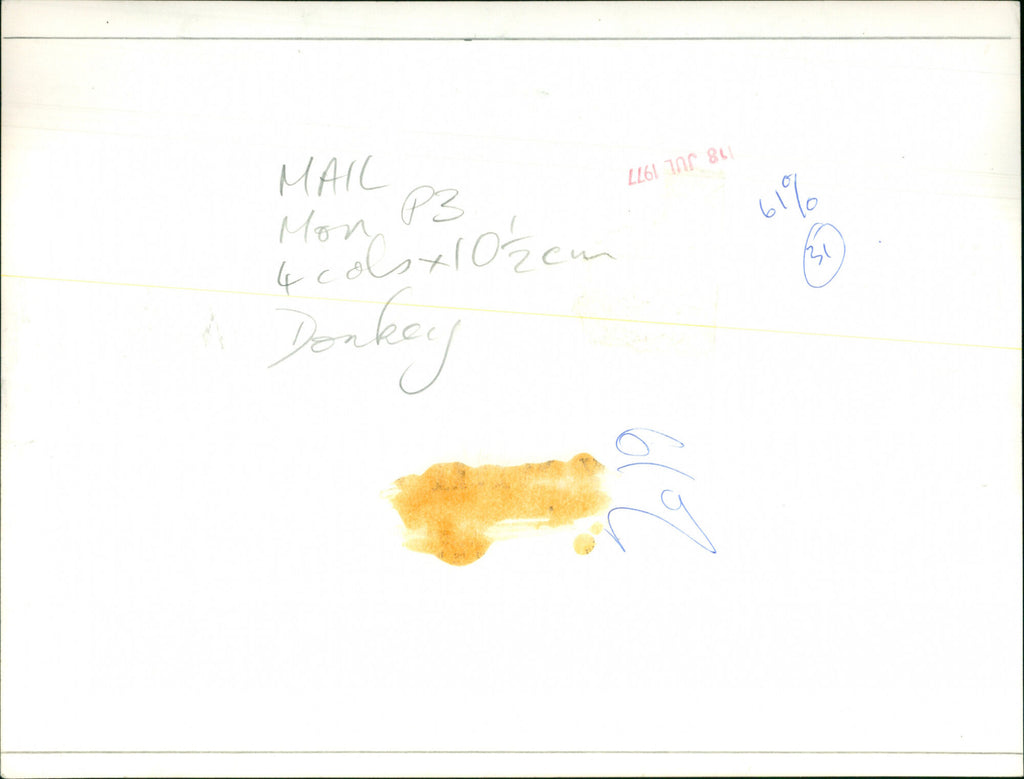 MAIL
Mon P3
4 cols x 10 1/2 cm
Donkey
18 JUL 1977
61%
31